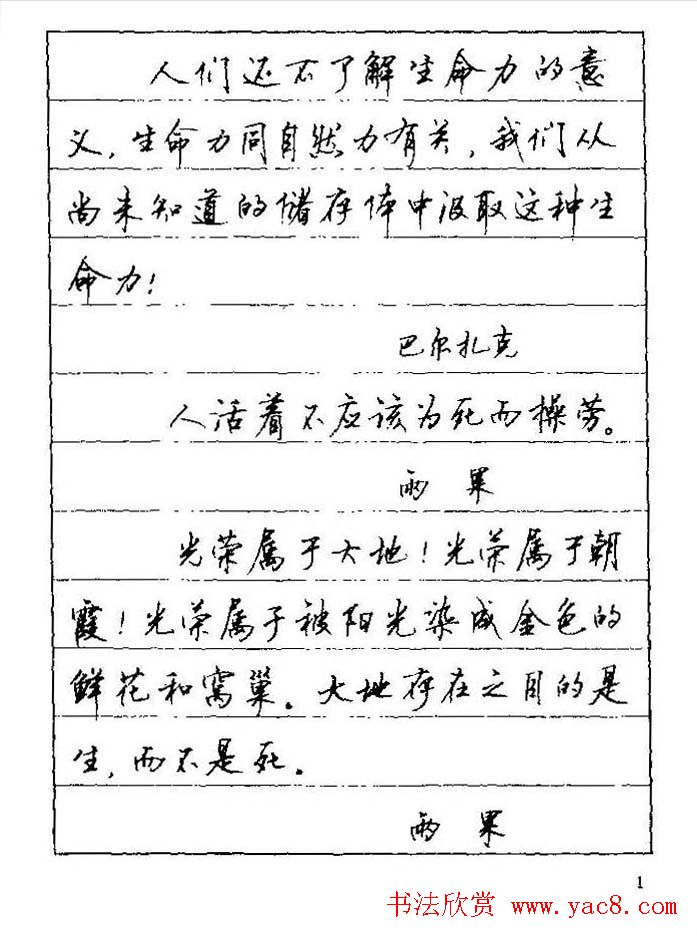 人们还不了解生命力的意
义，生命力同自然力有关，我们从
尚未知道的储存体中汲取这种生
命力！
巴尔扎克
人活着不应该为死而操劳。
雨果
光荣属于大地！光荣属于朝
霞！光荣属于被阳光染成金色的
鲜花和窝巢。大地存在之目的是
生，而不是死。
雨果
1
书法欣赏 www.yac8.com